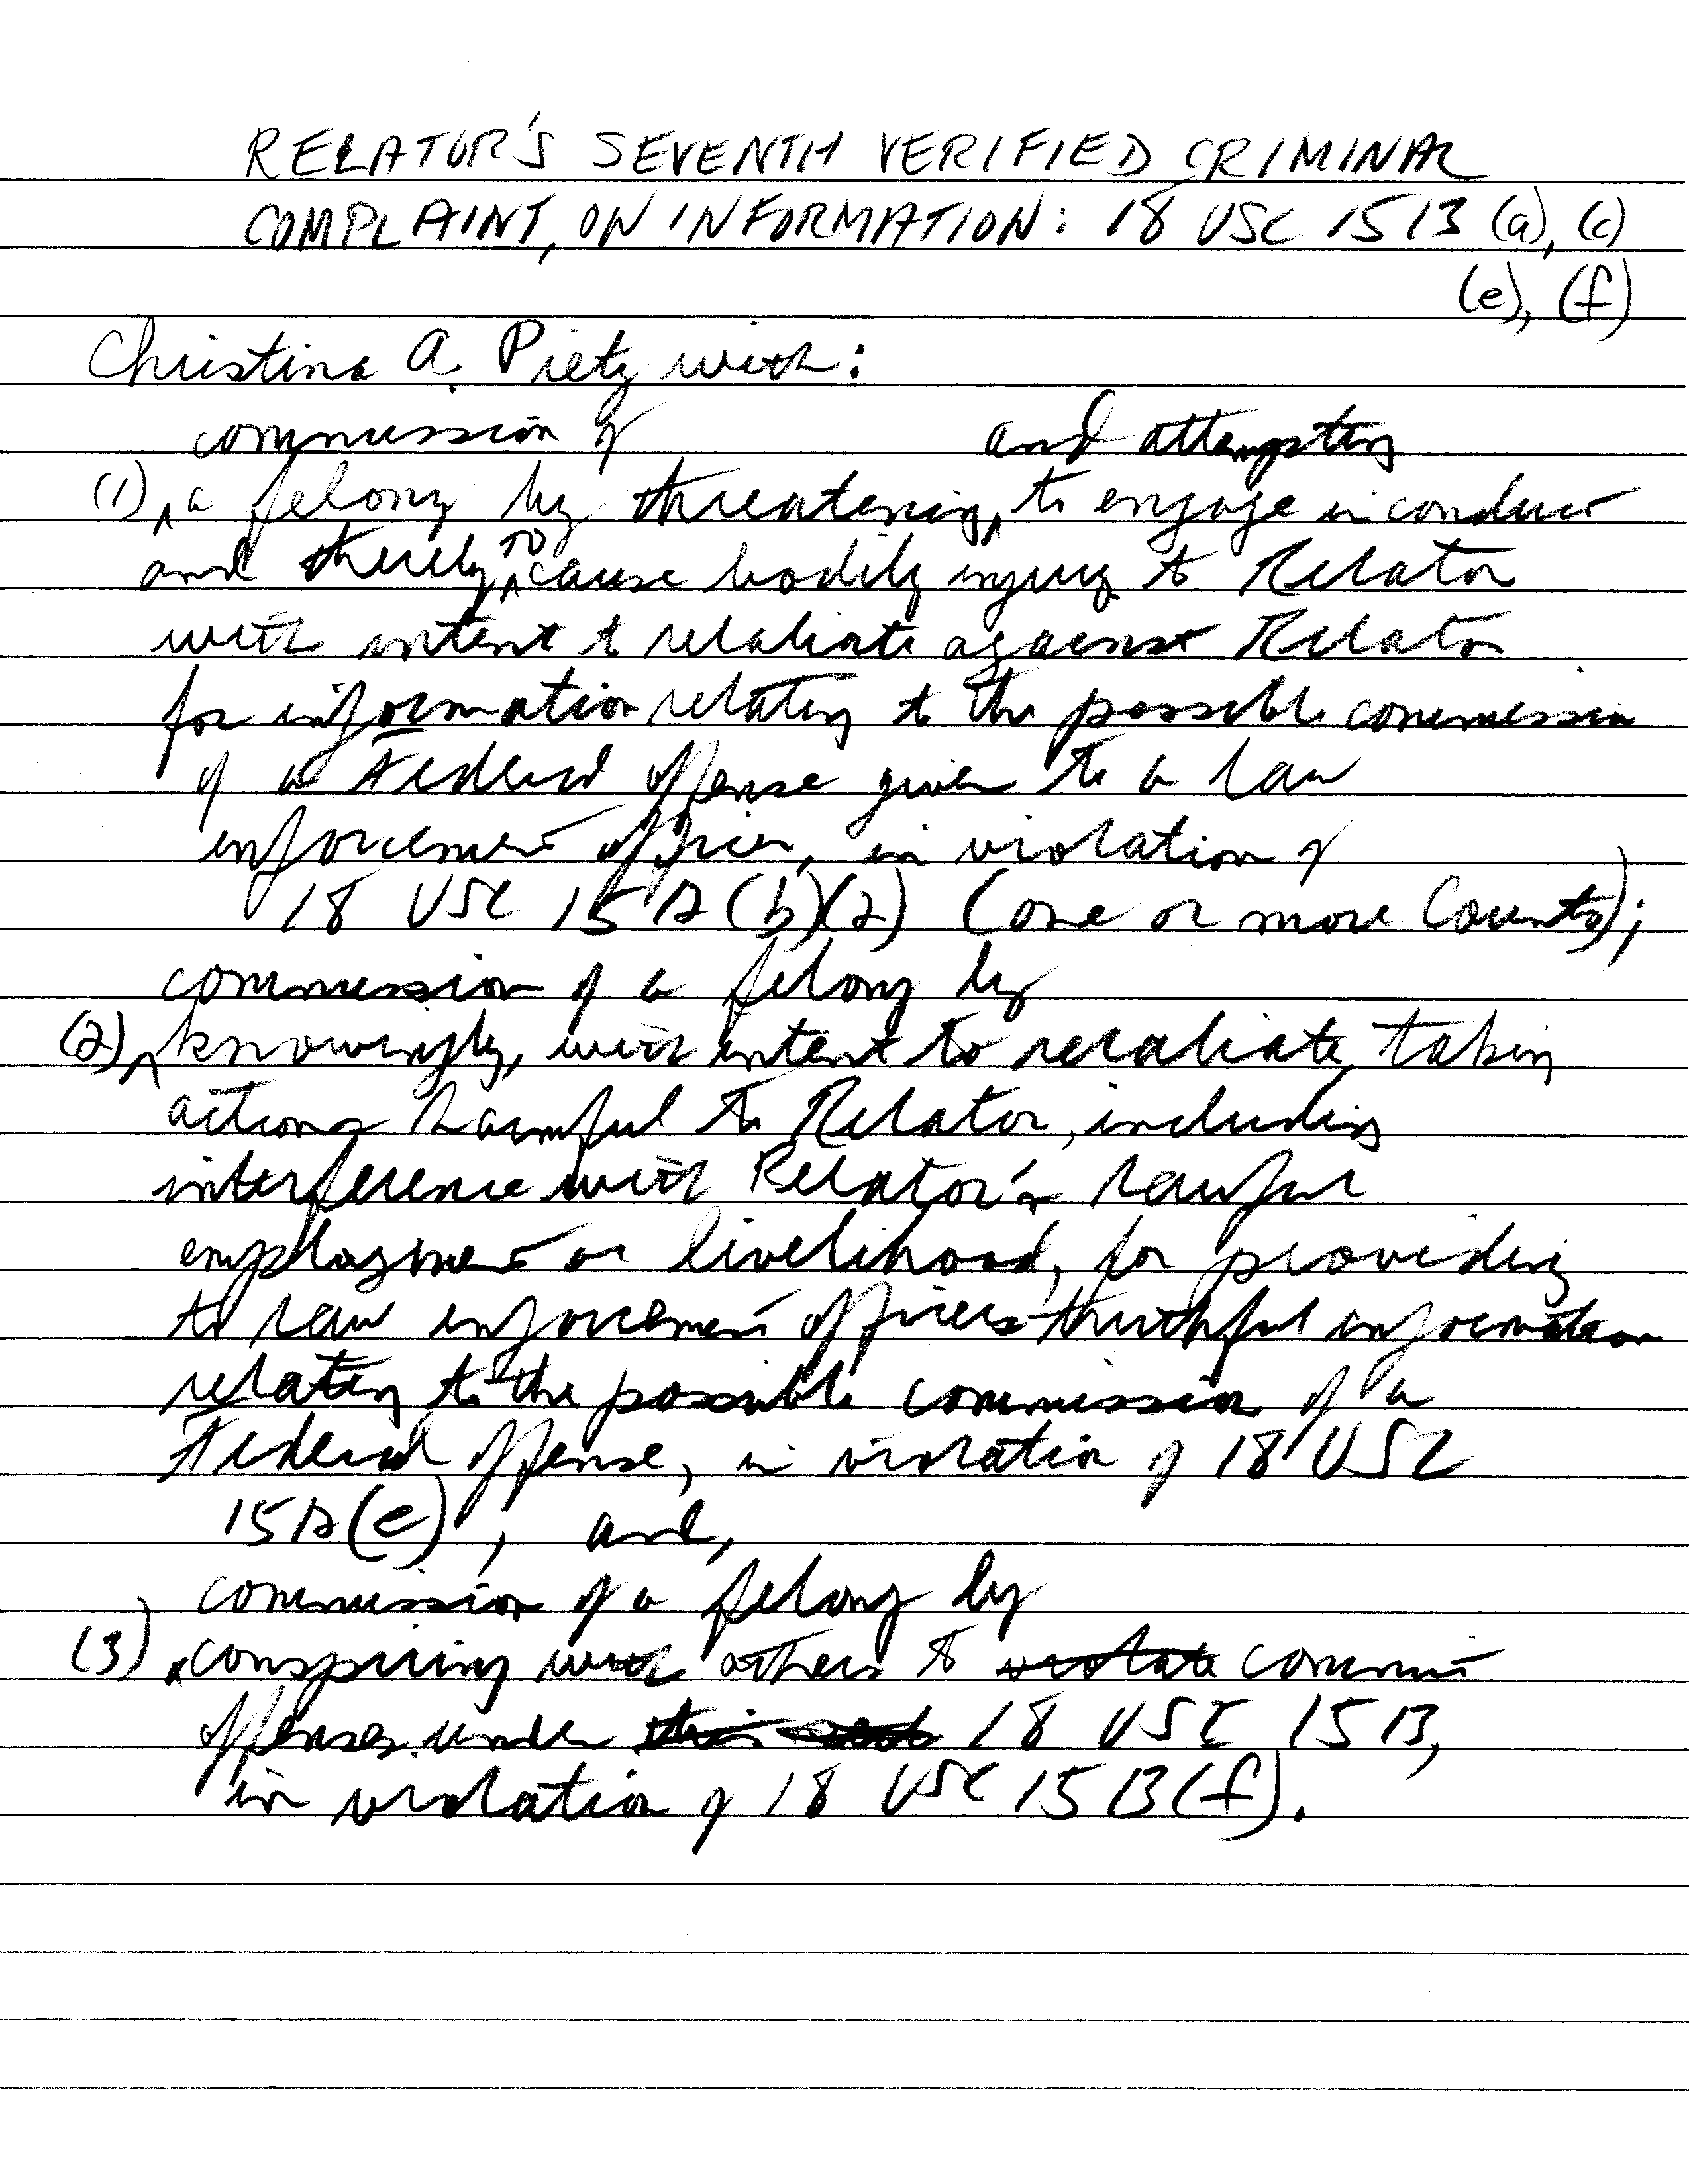 RELATOR'S SEVENTH VERIFIED CRIMINAL
COMPLAINT, ON INFORMATION: 18 USC 1513 (a), (c)
(e), (f)
Christina A. Pietz with:
commission of and attempting
(1) ^ a felony by threatening ^ to engage in conduct
and thereby ^ TO cause bodily injury to Relator
with intent to retaliate against Relator
for information relating to the possible commission
of a Federal offense given to a law
enforcement officer, in violation of
18 USC 1513 (b)(2) (one or more Counts);
commission of a felony by
(2) ^ knowingly, with intent to retaliate, taking
actions harmful to Relator, including
interference with Relator's lawful
employment or livelihood, for providing
to law enforcement officers truthful information
relating to the possible commission of a
Federal offense, in violation of 18 USC
1513(e); and,
commission of a felony by
(3) ^ conspiring with others to violate commit
offenses under 18 USC 1513,
in violation of 18 USC 1513(f).